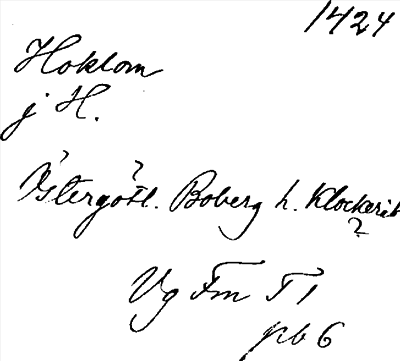 1424
Hoklom
j H.
? ?
Östergötl. Boberg h. Klockerik
?
Vg Fm T1
pb 6